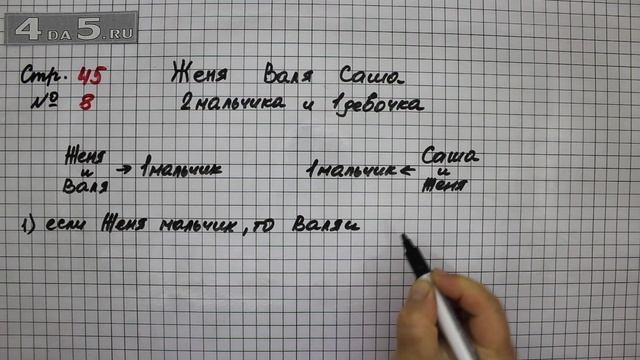 4DA5.RU
Стр. 45 Женя Валя Саша
№ 8 2 мальчика и 1 девочка
Женя
и
Валя
→ 1 мальчик
1 мальчик ←
Саша
и
Женя
1) если Женя мальчик, то Валя и